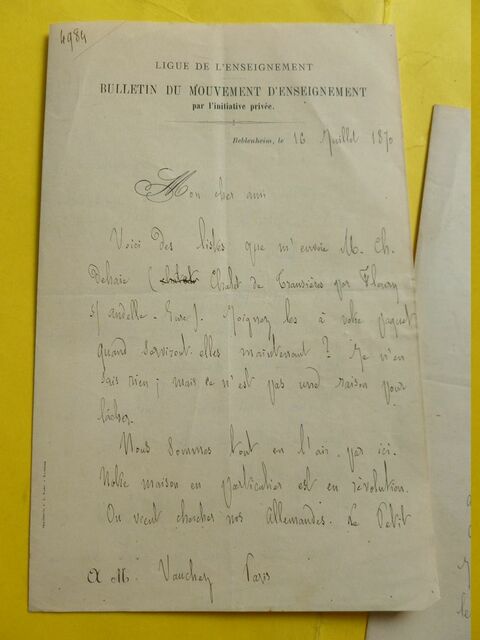 4984
LIGUE DE L'ENSEIGNEMENT
BULLETIN DU MOUVEMENT D'ENSEIGNEMENT
par l'initiative privée.
Beblenheim, le 16 Juillet 1870
Mon cher ami
Voici des listes que m'envoie M. Ch.
Dehais ( Chalet de Transières par Fleury
s/ andelle - Eure ). Joignez les à votre paquet
quand serviront-elles maintenant ? Je n'en
sais rien ; mais ce n'est pas une raison pour
lâcher.
Nous sommes tout en l'air par ici.
Notre maison en particulier est en révolution.
On vient chercher nos allemandes. Le Petit
A M. Vauchez Paris